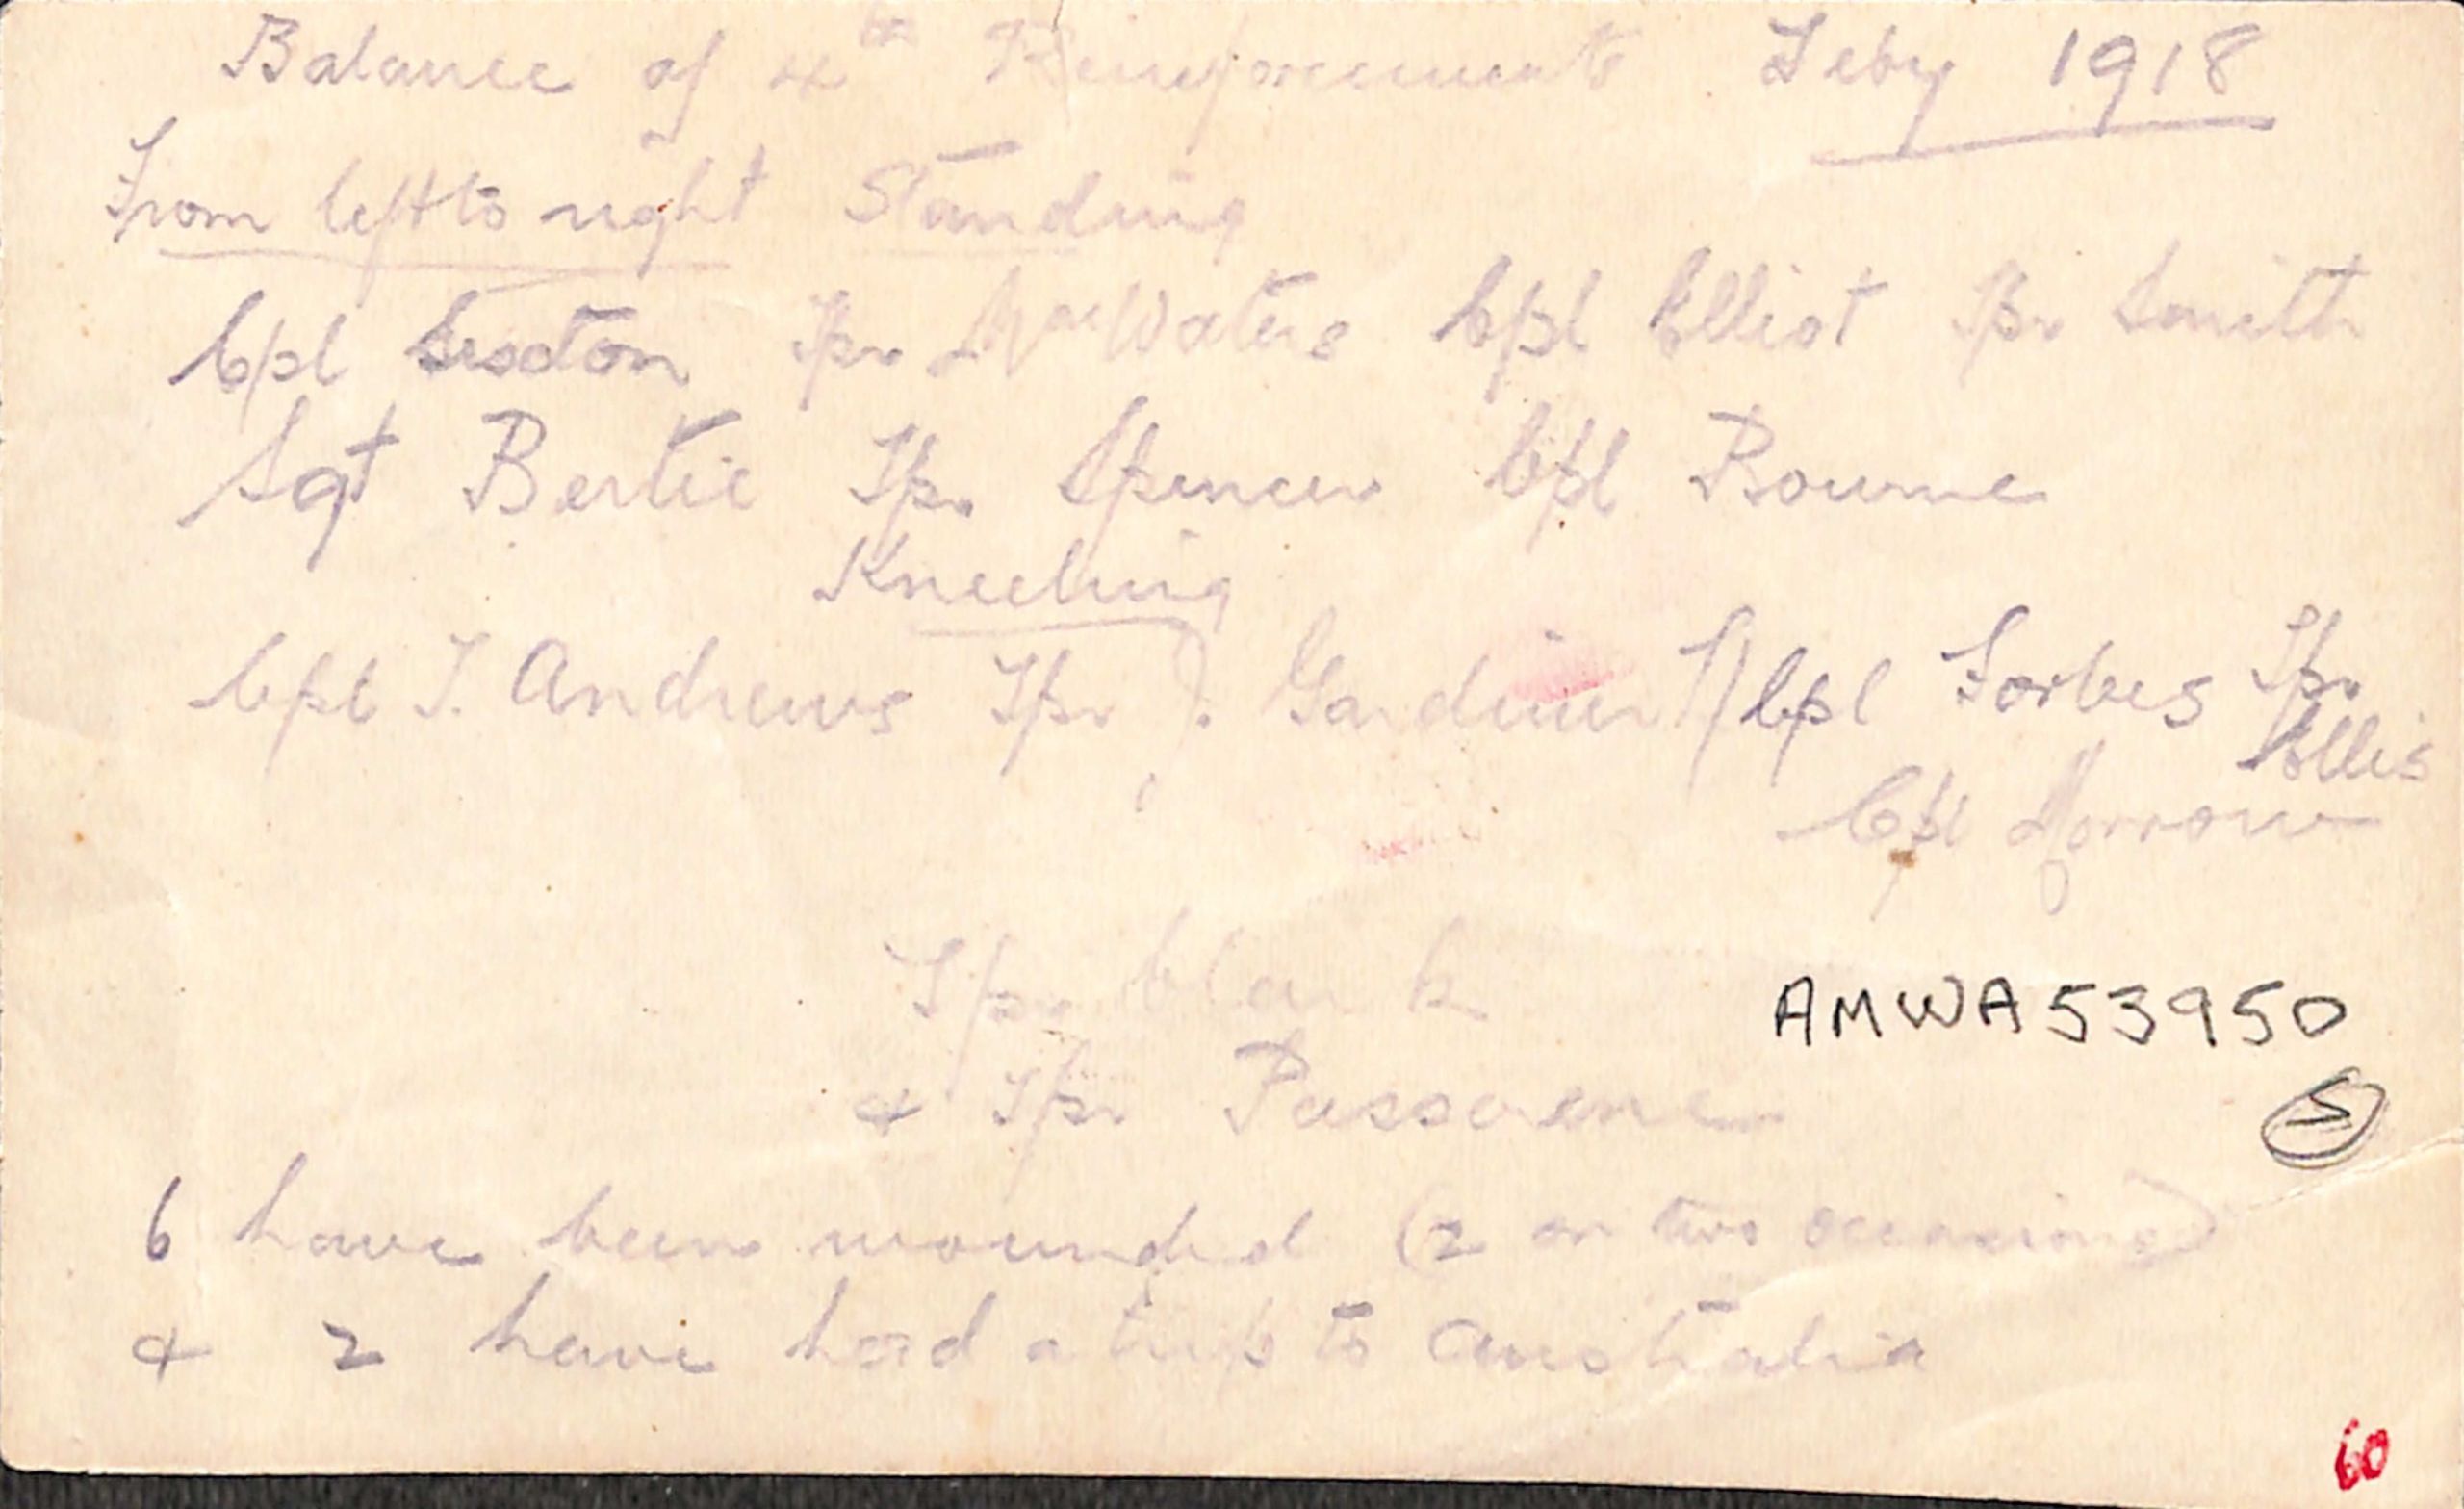 Balance of 4th Reinforcements Feby 1918
From left to right Standing
Cpl Sexton Tpr McWaters Cpl Elliot Tpr Smith
Sgt Bertie Tpr Spencer Cpl Bourne
Kneeling
Cpl T. Andrews Tpr J. Gardiner T/Cpl Forbes Tpr
Ellis
Cpl Morrow
Tpr Clark
AMWA53950
& Tpr
5
6 have been wounded (2 on two occasions)
& 2 have had a trip to Australia
60